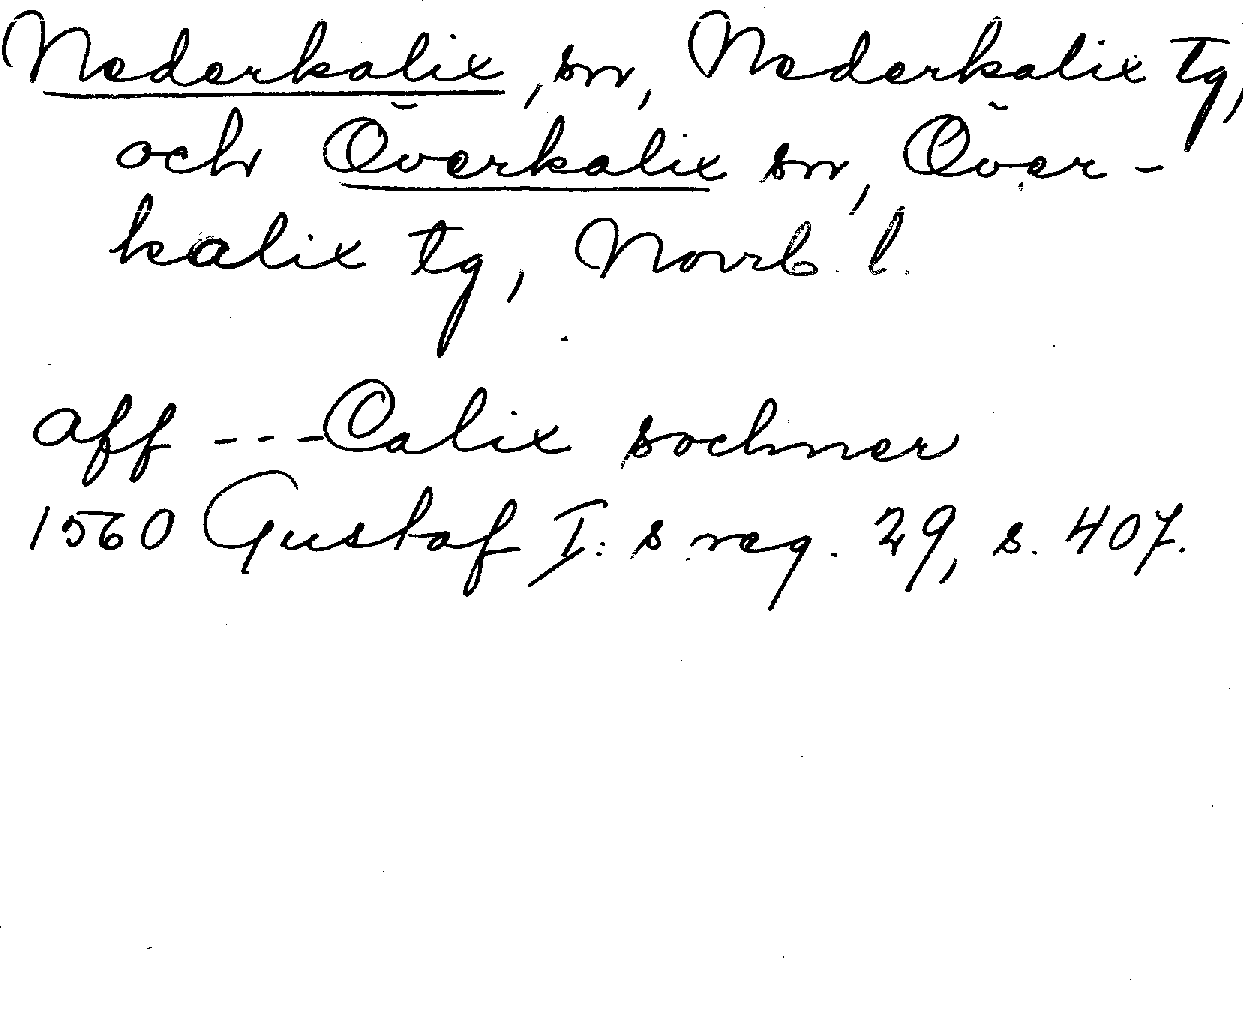 Nederkalix, sn, Nederkalix tg,
och Överkalix sn, Över-
kalix tg, Norrb. l.
aff --- Calix sochner
1560 Gustaf I:s reg. 29, s. 407.